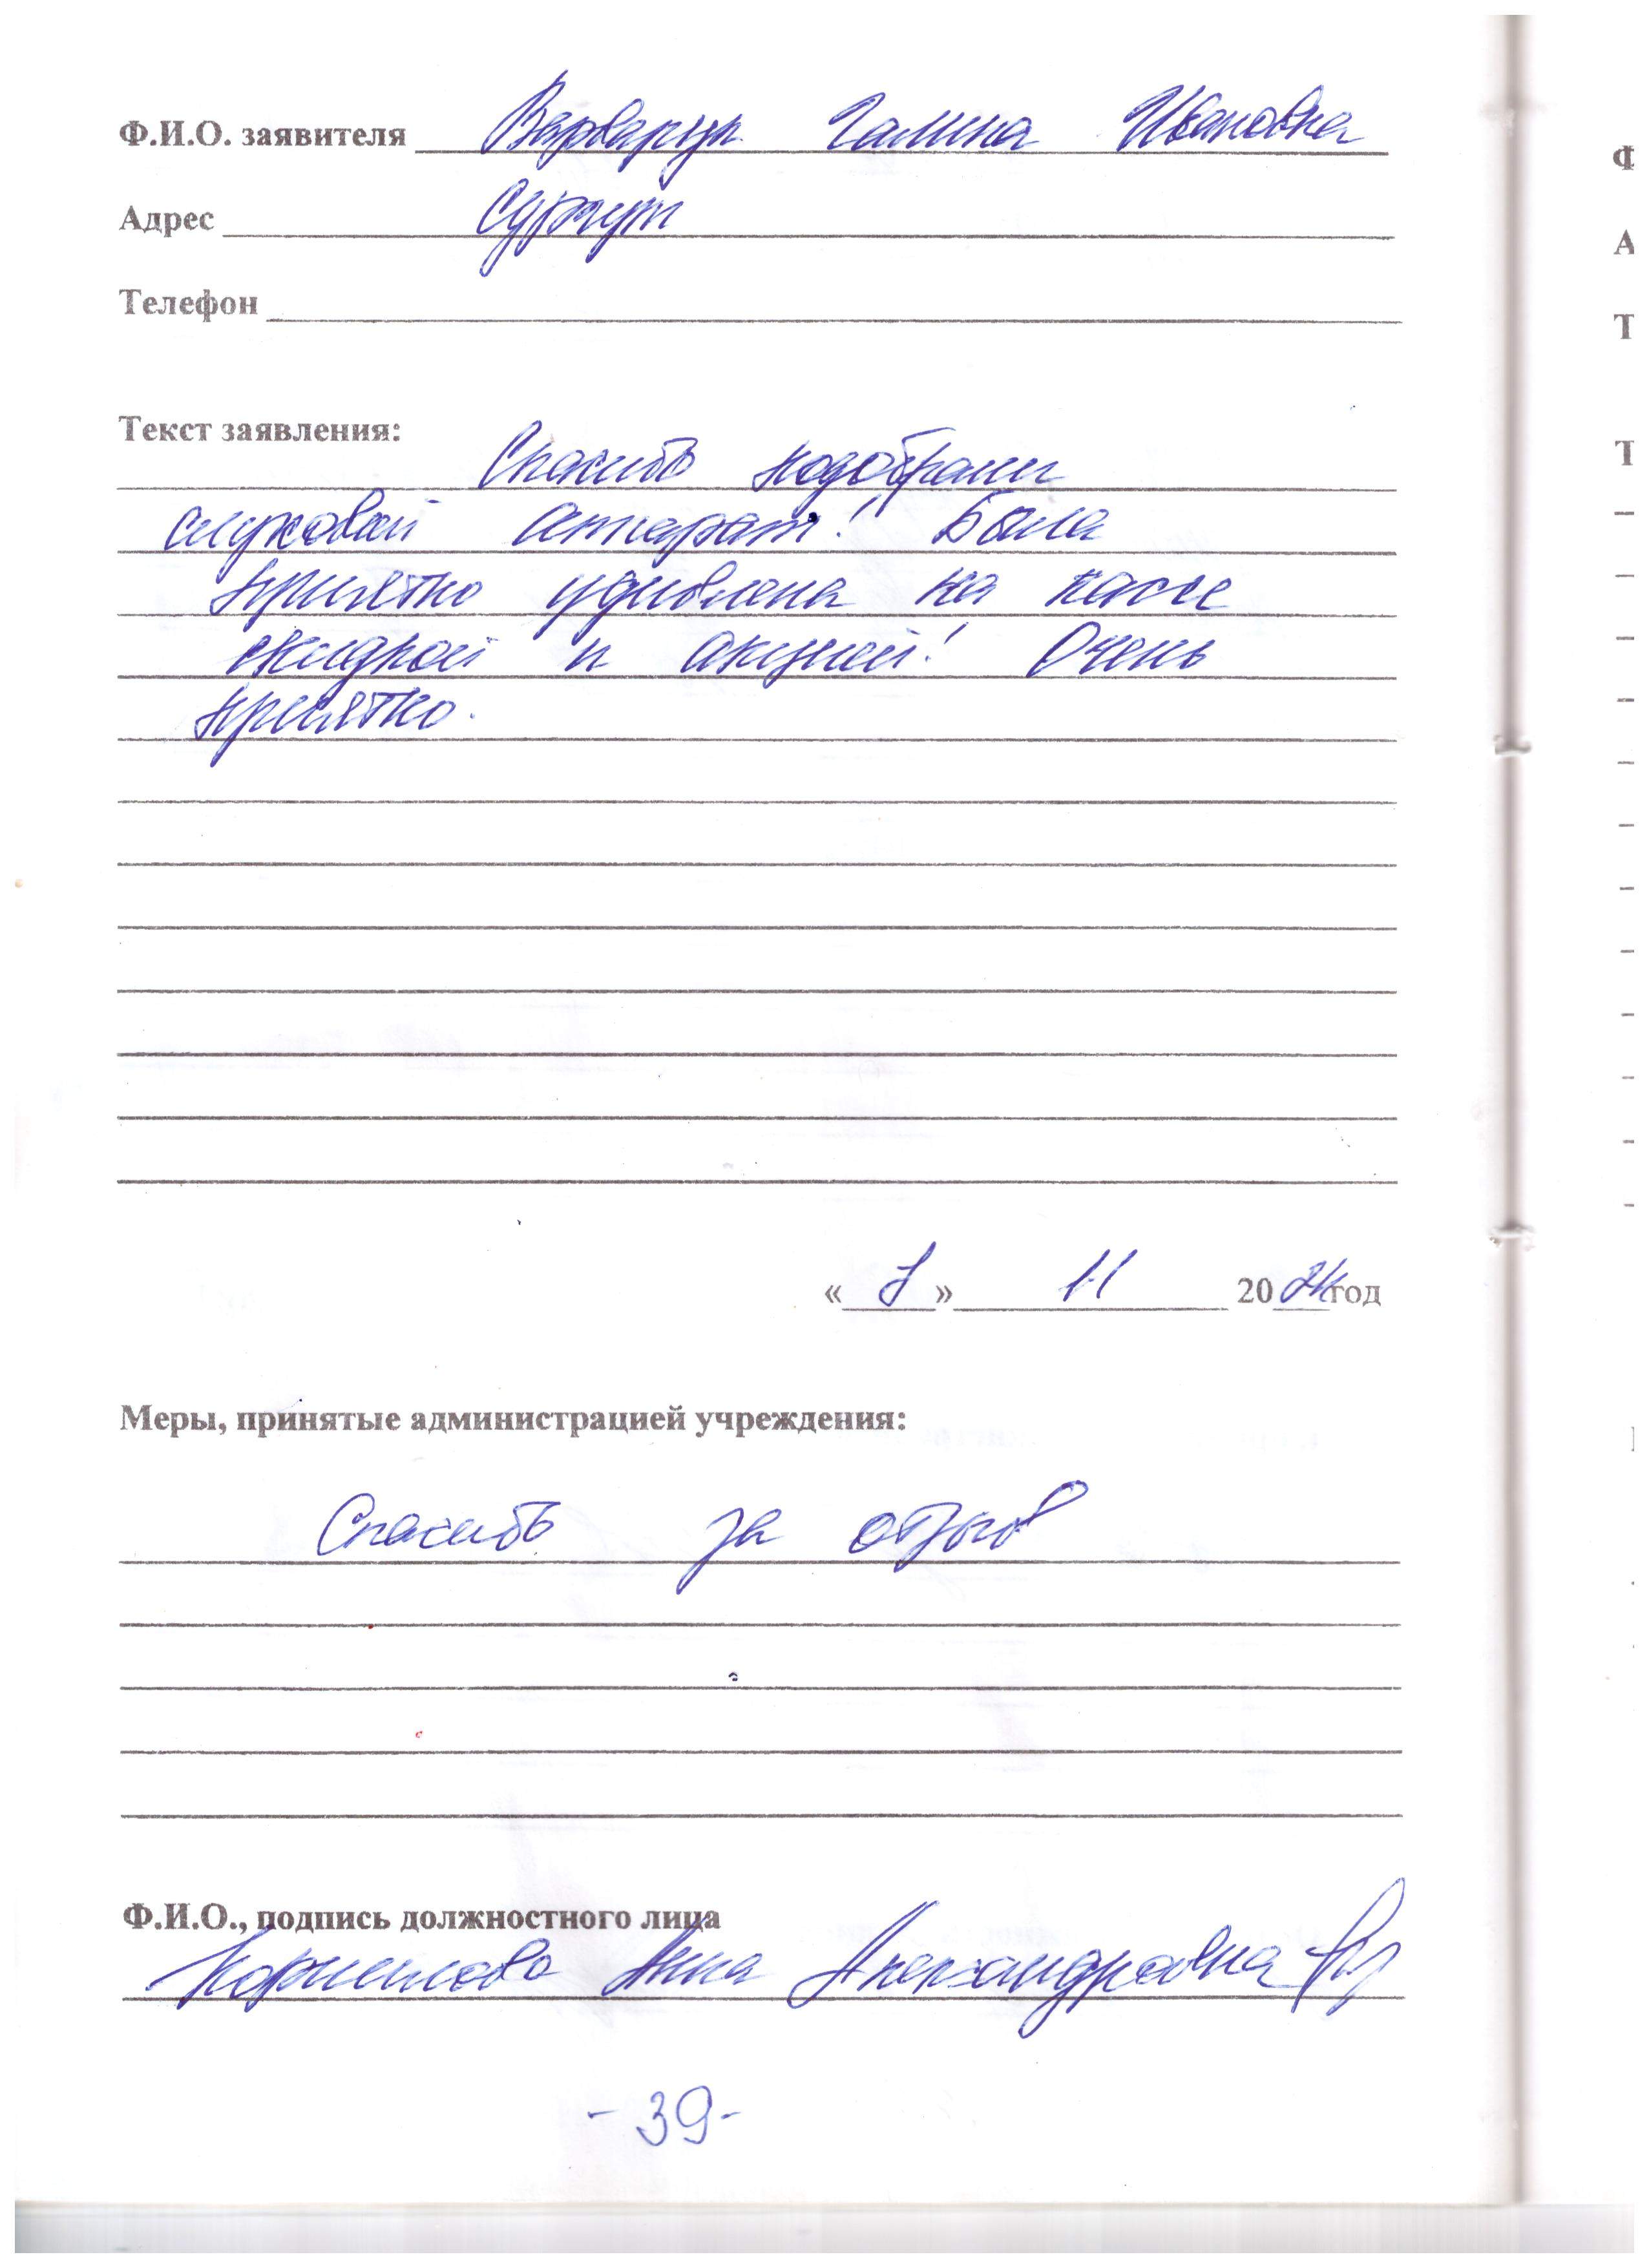 Ф.И.О. заявителя Галина Ивановна
Адрес Сургут
Телефон
Текст заявления:
Спасибо подобрали
слуховой аппарат! Была
приятно удивлена на кассе
скидкой и акцией! Очень
приятно.
« 7 » 11 2024 год
Меры, принятые администрацией учреждения:
Спасибо за отзыв
Ф.И.О., подпись должностного лица
Корнилова Анна Александровна
- 39 -